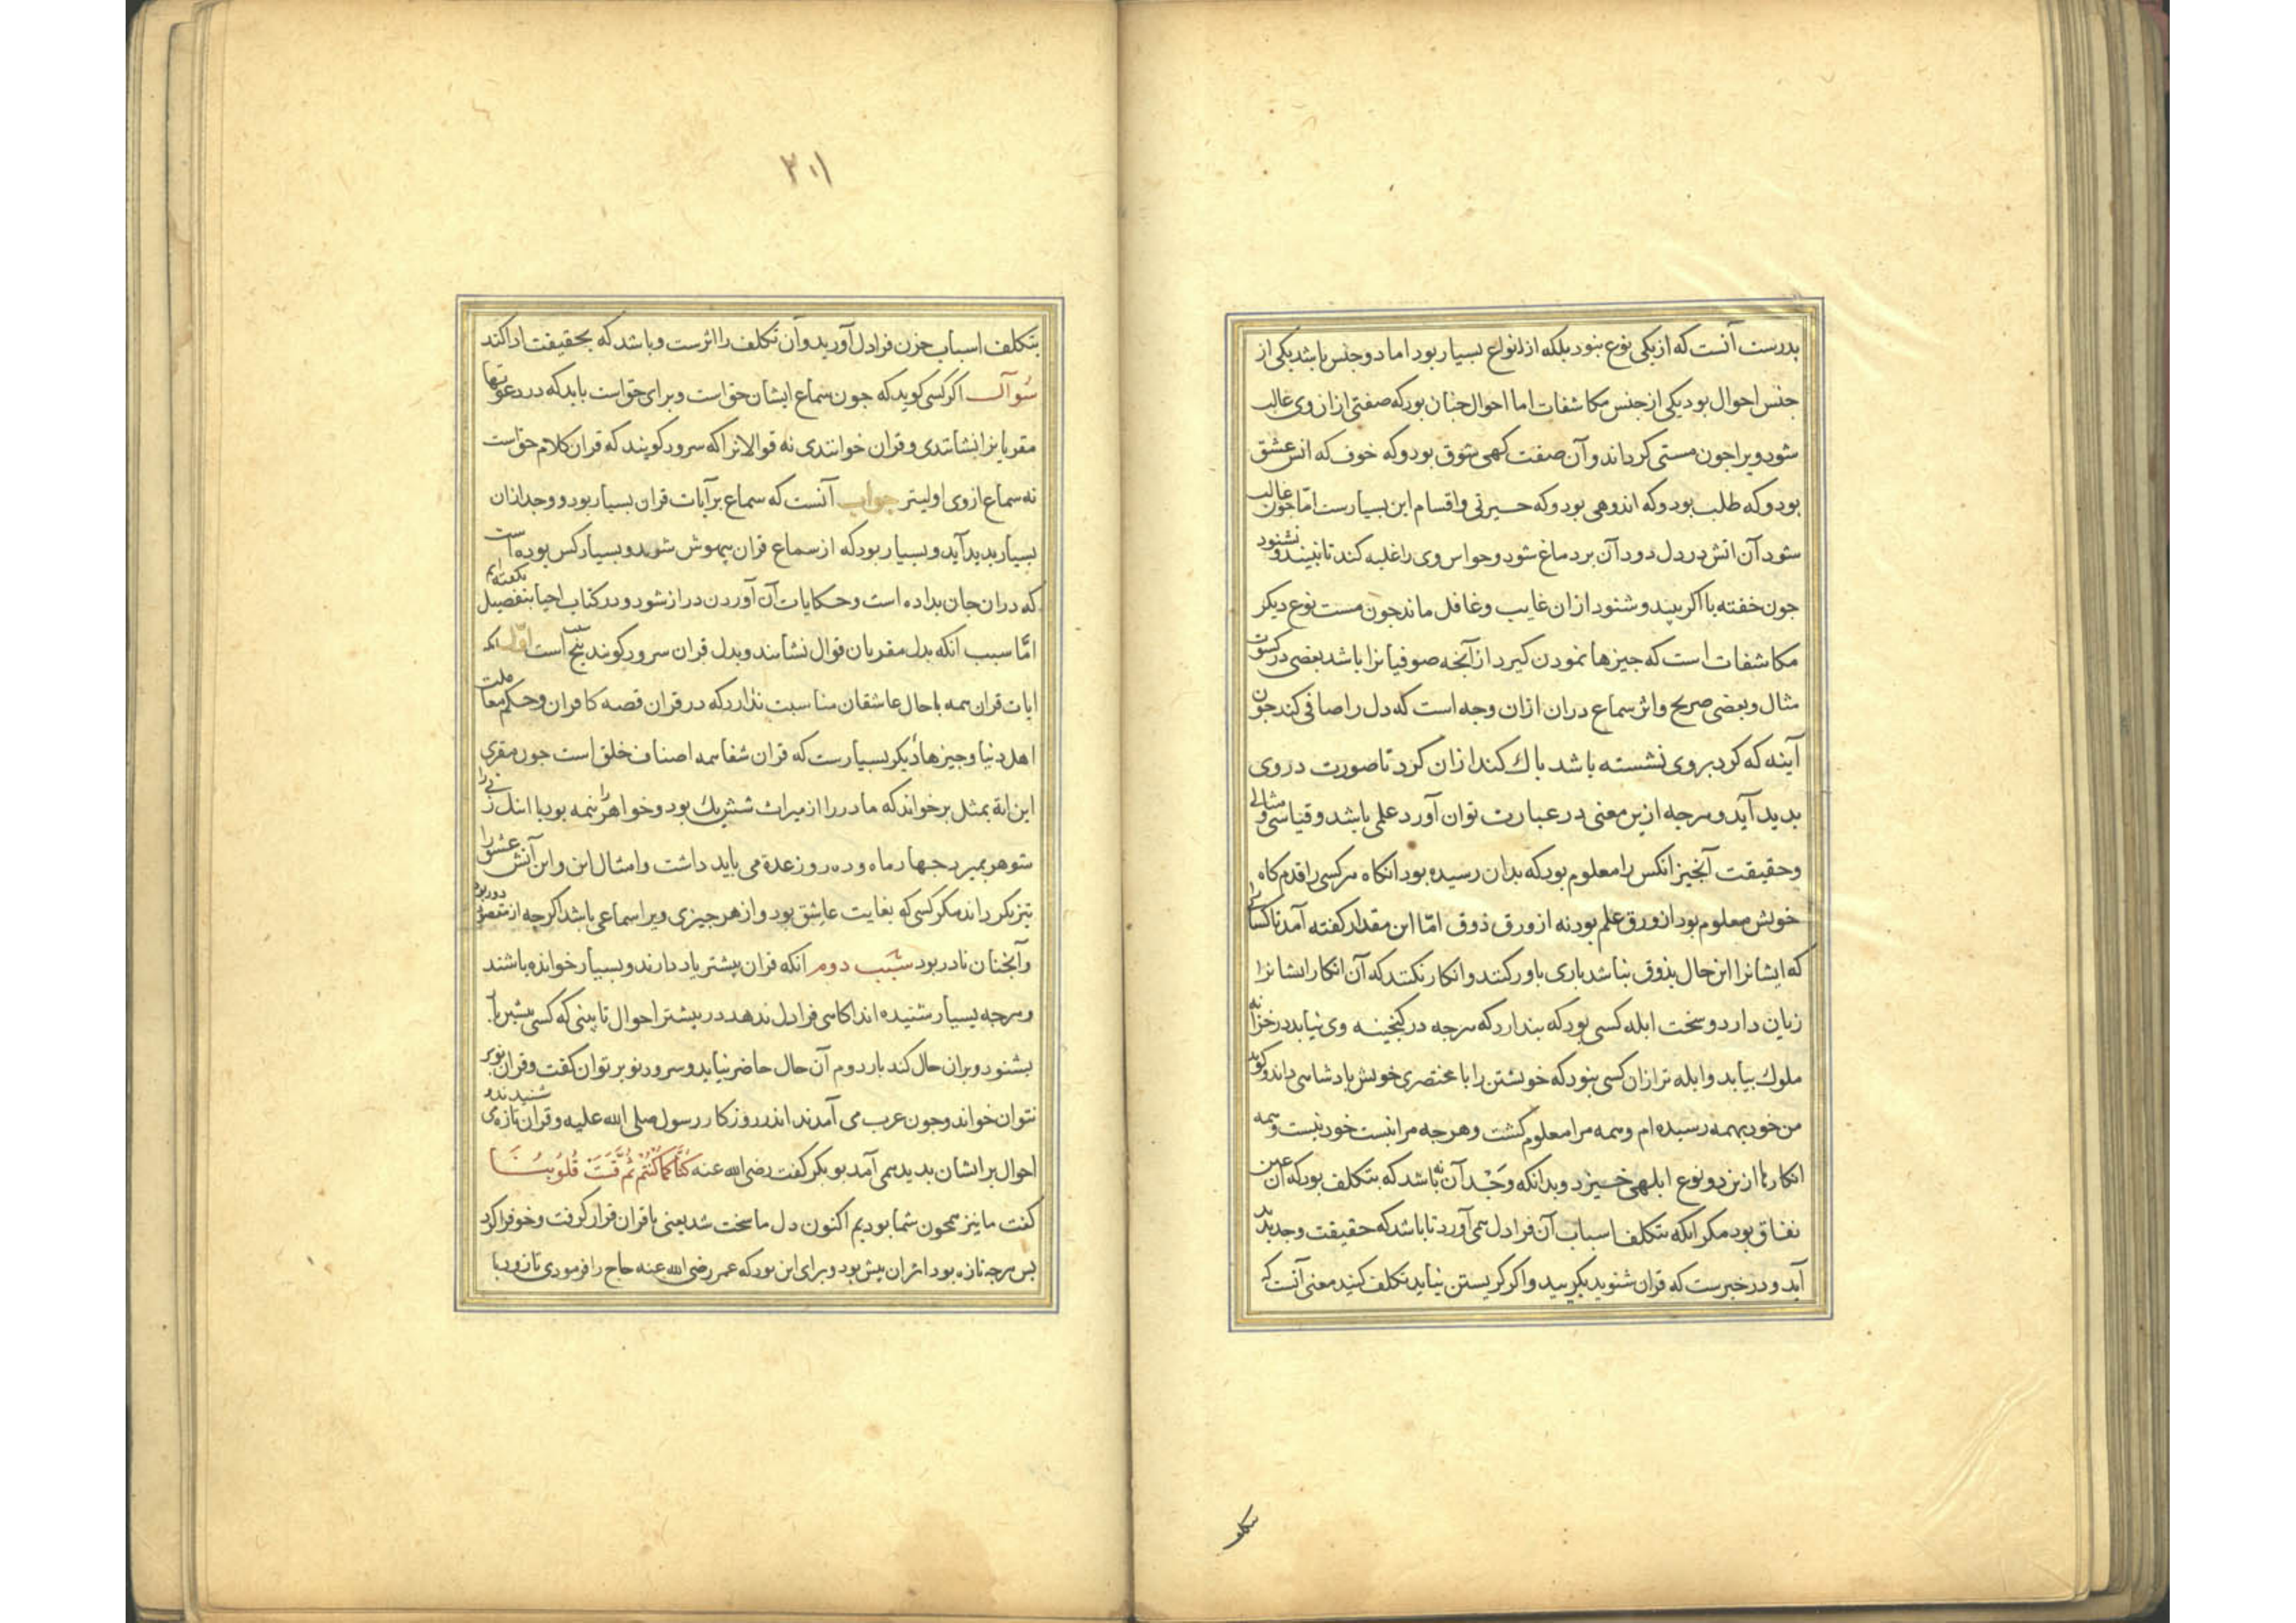 بدرست آنست که از یکی نوع نبود بلکه از انواع بسیار بود اما دو جنس باشد یکی از
جنس احوال بود یکی از جنس مکاشفات اما احوال جنان بود که صفتی از ان وی غالب
شود ویرا جون مستی کرداند و آن صفت کهی شوق بود و که خوف که اتش عشق
بود و که طلب بود و که اندوهی بود و که حسرتی و اقسام این بسیارست امّا جون غالب
شود آن اتش در دل دود آن بر دماغ شود و حواس وی را غلبه کند تا نبیند و نشنود
جون خفته یا اکر بیند و شنود ازان غایب و غافل ماند جون مست نوع دیکر
مکاشفات است که جیزها نمودن کیرد از آنجه صوفیانرا باشد بعضی در کسوت
مثال و بعضی صریح و اثر سماع دران ازان وجه است که دل را صافی کند جون
آینه که کرد بروی نشسته باشد باك کند ازان کرد تا صورت در وی
بدید آید و هرجه ازین معنی در عبارت توان آورد علمی باشد و قیاسی و مثالی
و حقیقت آنجیز انکس را معلوم بود که بدان رسیده بود انکاه هر کسی را قدم کاه
خویش معلوم بود از ورق علم بود نه از ورق ذوق امّا این مقدار کفته آمد تا کسانی را
که ایشانرا این حال بذوق نباشد باری باور کنند و انکار نکنند که آن انکار ایشانرا
زیان دارد و سخت ابله کسی بود که بندارد که هرجه در کنجینه وی نیابد در خزانه
ملوك نیابد و ابله تر ازان کسی بود که خویشتن را با مختصری خویش بادشاهی داند و کوید
من خود بهمه رسیده ام و همه مرا معلوم کشت و هرجه مرا نیست خود نیست و همه
انکارها ازین دو نوع ابلهی خیزد و بدانکه وَجْد آن نه باشد که بتکلف بود که آن عین
نفاق بود مکر انکه بتکلف اسباب آن فرا دل همی آورد تا باشد که حقیقت وجد بدید
آید و در خبرست که قران شنوید بکریید و اکر کریستن نیاید تکلف کنید معنی آنست که
بتکلف
۳۰۱
بتکلف اسباب حزن فرا دل آورید و آن تکلف را اثرست و باشد که بحقیقت ادا کند
سُوآل اکر کسی کوید که جون سماع ایشان حق است و برای حق است باید که در دعوتها
مقریانرا نشاندی و قران خوانندی نه قوالانرا که سرود کویند که قران کلام حق است
نه سماع از وی اولیتر جواب آنست که سماع بر آیات قران بسیار بود و وجد ازان
بسیار بدید آید و بسیار بود که از سماع قران بیهوش شوند و بسیار کس بوده است
که دران جان بداده است و حکایات آن آوردن دراز شود و در کتاب احیا بتفصیل بکفته ایم
امّا سبب انکه بدل مقریان قوال نشانند و بدل قران سرود کویند بنج است اوّل انکه
ایات قران همه با حال عاشقان مناسبت ندارد که در قران قصه کافران و حکم معاملت
اهل دنیا و جیزها دیکر بسیارست که قران شفا همه اصناف خلق است جون مقری
این ایة بمثل برخواند که مادر را از میراث شش یك بود و خواهر را نیمه بود یا انك زنی را
شوهر بمیرد جهار ماه و ده روز عدة می باید داشت و امثال این و این آتش عشق را
تیز نکرداند مکر کسی که بغایت عاشق بود و از هر جیزی ویرا سماعی باشد اکرجه از مقصود دور بود
و آنجنان نادر بود سَبَب دوم انکه قران بیشتر یاد دارند و بسیار خوانده باشند
و هرجه بسیار شنیده اند اکاهی فرا دل ندهد در بیشتر احوال تا بینی که کسی بیشین بار
بشنود و بران حال کند بار دوم آن حال حاضر نیاید و سرود نو بر توان کفت و قران نو بر
نتوان خواند و جون عرب می آمدند اندر روزکار رسول صلی الله علیه و قران تازه می شنیدند و
احوال بر ایشان بدید همی آمد بوبکر کفت رضی الله عنه کُنَّا کَمَا کُنْتُم ثُمَّ قَسَتْ قُلُوبُنَا
کفت ما نیز همجون شما بودیم اکنون دل ما سخت شد یعنی با قران قرار کرفت و خو فرا کرد
بس هرجه تازه بود اثر ان بیش بود و برای این بود که عمر رضی الله عنه حاج را فرمودی تا زود با